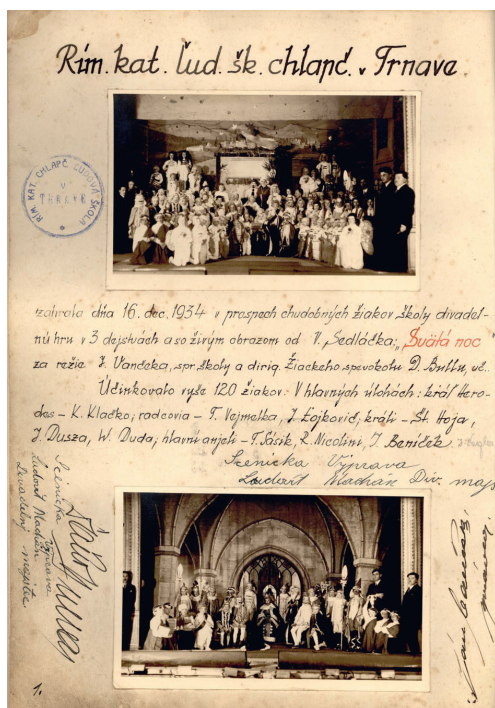 Rím. kat. ľud. šk. chlapč. v Trnave
RÍM. KAT. CHLAPČ. ĽUDOVÁ ŠKOLA
V
TRNAVE
zahrala dňa 16. dec. 1934 v prospech chudobných žiakov školy divadel-
nú hru v 3 dejstvách a so živým obrazom od V. Sedláčka: „Svätá noc
za režie J. Vančeka, spr. školy a dirig. žiackeho spevokolu D. Bullu, uč.
Účinkovalo vyše 120 žiakov. V hlavných úlohách: kráľ Hero-
des – K. Klačko; radcovia – T. Vejmelka, J. Lojkovič; králi – Št. Hoja,
J. Dusza, W. Duda; hlavní anjeli – T. Sásik, R. Nicolini, J. Beníček
Szénicka Výprava
Ludovit Machán Div. majs
Szénicka
Výprava
Ludovit Machán
Divadelní majster
1.